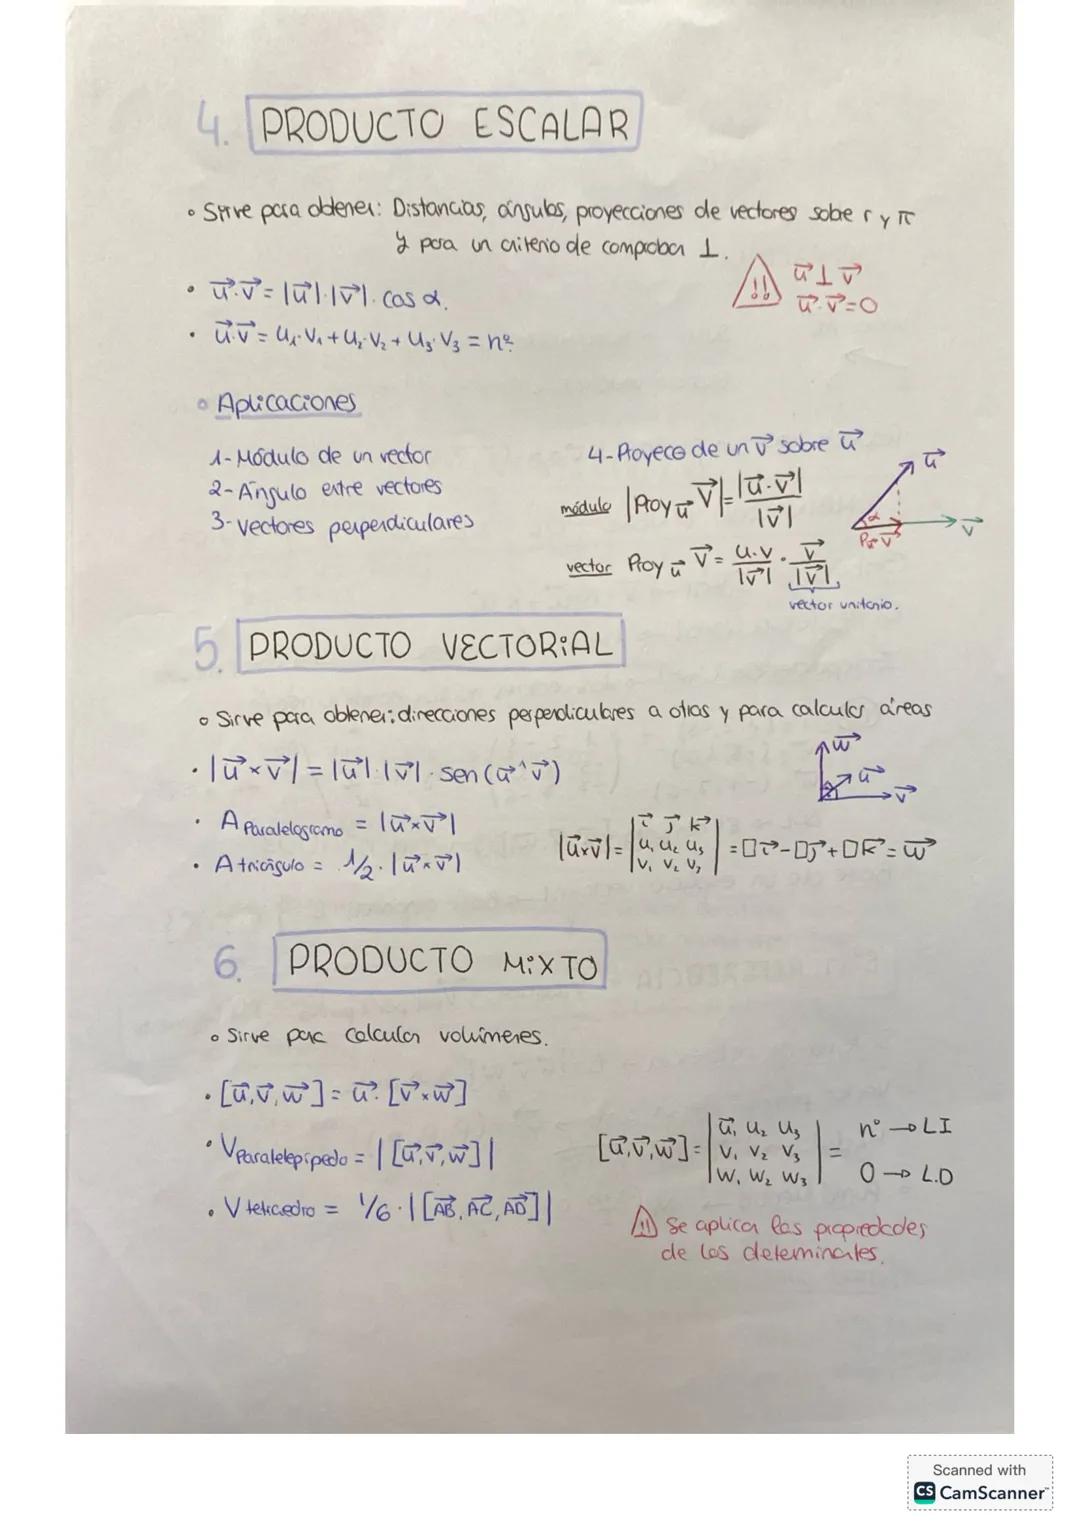 4. PRODUCTO ESCALAR
◦ Sirve para obtener: Distancias, ángulos, proyecciones de vectores sobre r y π
y para un criterio de comprobar ⊥.
⚠ !! u⃗ ⊥ v⃗
u⃗·v⃗=0
• u⃗·v⃗ = |u⃗|·|v⃗|· cos α.
• u⃗·v⃗ = u₁·v₁ + u₂·v₂ + u₃·v₃ = nº
◦ Aplicaciones
1- Módulo de un vector
2- Ángulo entre vectores
3- Vectores perpendiculares
4- Proyecc de un v⃗ sobre u⃗
módulo |Proy u⃗ v⃗| = |u⃗·v⃗| / |v⃗|
vector Proy u⃗ v⃗ = u·v / |v⃗| · v⃗ / |v⃗|
vector unitario.
u⃗
α
P u⃗ v⃗
v⃗
5. PRODUCTO VECTORiAL
◦ Sirve para obtener: direcciones perpendiculares a otras y para calcular áreas
• |u⃗×v⃗| = |u⃗|·|v⃗| · sen (u⃗^v⃗)
w⃗
u⃗
v⃗
• A Paralelogramo = |u⃗×v⃗|
• A triángulo = 1/2 · |u⃗×v⃗|
|u⃗×v⃗| = | i⃗ j⃗ k⃗ |
| u₁ u₂ u₃ | = □i⃗ - □j⃗ + □k⃗ = w⃗
| v₁ v₂ v₃ |
6. PRODUCTO MiXTO
◦ Sirve para calcular volúmenes.
• [u⃗,v⃗,w⃗] = u⃗· [v⃗×w⃗]
• V Paralelepípedo = |[u⃗,v⃗,w⃗]|
• V tetraedro = 1/6 · |[AB⃗, AC⃗, AD⃗]|
[u⃗,v⃗,w⃗] = | u₁ u₂ u₃ | nº → LI
| v₁ v₂ v₃ | =
| w₁ w₂ w₃ | 0 → L.D
⚠ !! Se aplican las propiedades
de los determinantes.
Scanned with
CS CamScanner™